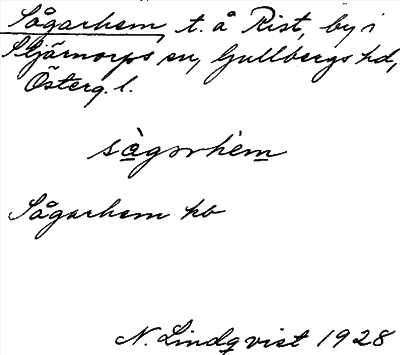 Sågarhem, t. å Rist, by i
Stjärnorps sn, Gullbergs hd,
Österg. l.
sàgərhèm
Sågarhem hb
N. Lindqvist 1928